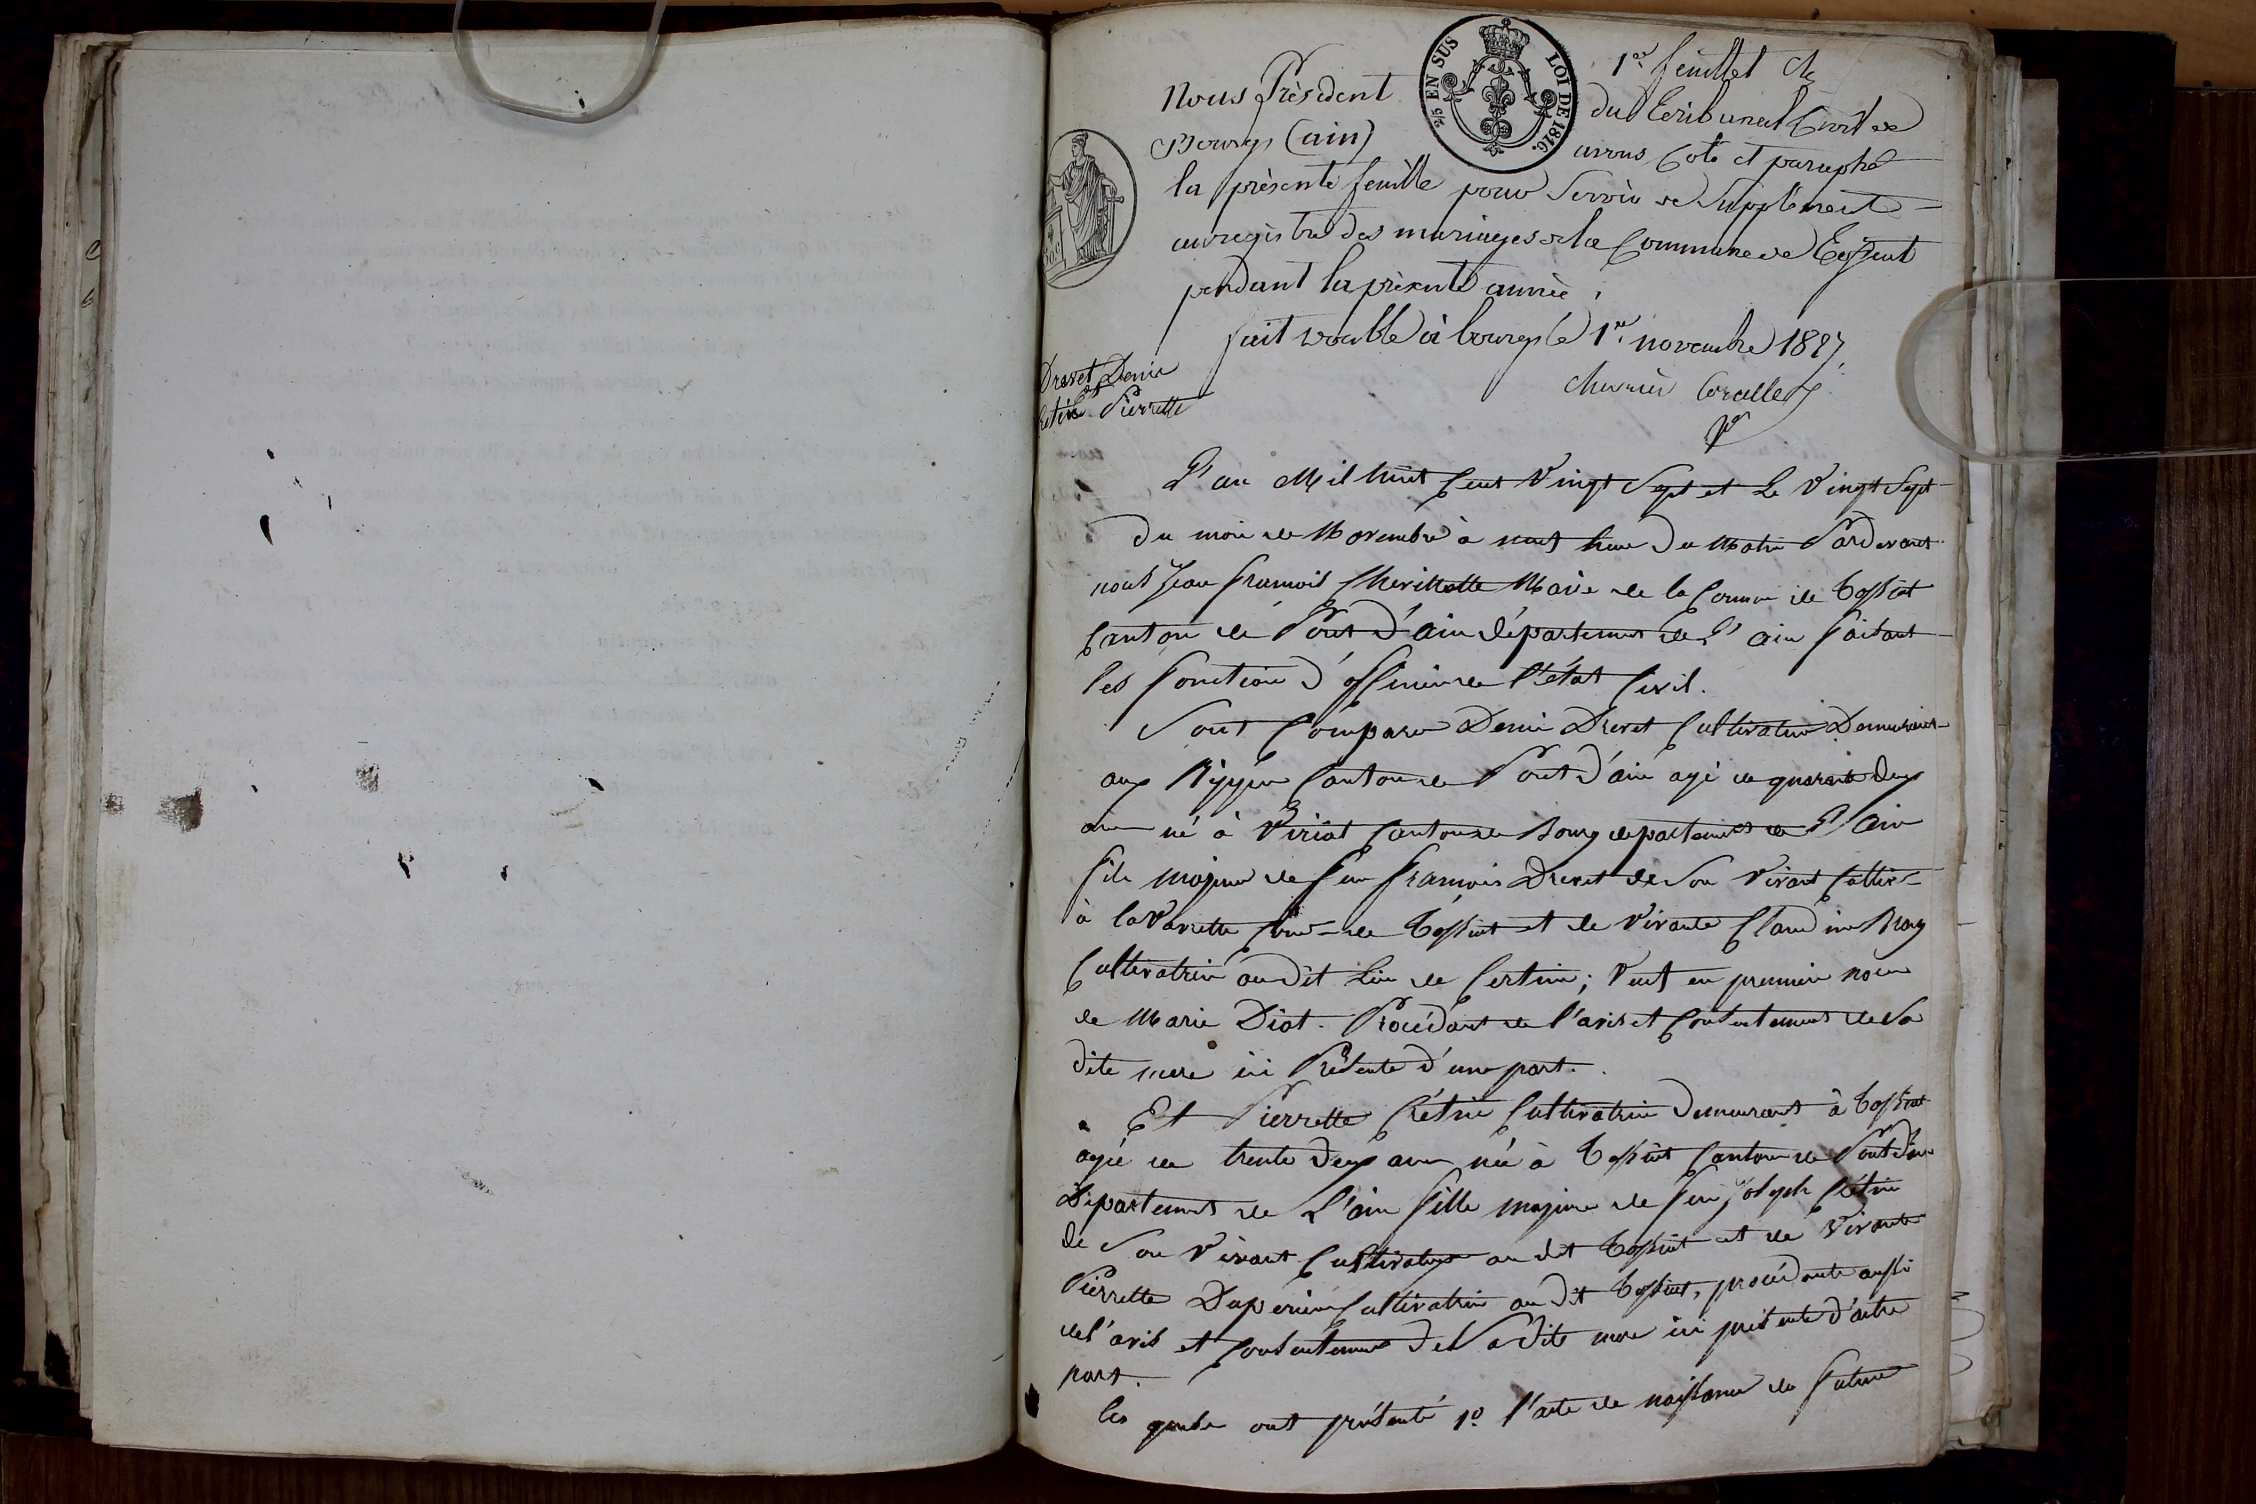 25 EN SUS LOI DE 1816.
1er feuillet
Nous Président du Tribunal Civil de
Bourg (ain) avons Coté et paraphé
la présente feuille pour Servir de Supplément
au registre des mariages de la Commune de Tossiat
pendant la présente année,
fait double à bourg le 1er novembre 1827.
Dresset Denis
et
Pierrette
L'an Mil huit Cent Vingt Sept et Le Vingt Sept
Du mois de Novembre à neuf heure Du Matin Pardevant
nous Jean françois Chevillotte Maire de la Comune de Tossiat
Canton de Pont d'Ain département de L'ain faisant
les fonction d'officier de l'état Civil.
Sont Comparu Denis Drevet Cultivateur Demeurant
aux Rippes Canton de Pont d'ain agé de quarante Deux
ans né à Viriat Canton de Bourg département de L'ain
fils majeur de feu françois Drevet de Son Vivant Cultivr
à la Vavrette Comne de Tossiat et de Vivante Claudine
Cultivatrice au dit Lieu de Certine; Veuf en premiere noce
de Marie Diot. Procédant de l'avis et Consentement de Sa
dite mere ici Présente d'une part.
Et Pierrette Crétin Cultivatrice Demeurant à Tossiat
agée de trente Deux ans née à Tossiat Canton de Pont d'ain
Département de L'ain fille majeure de feu Joseph Crétin
de Son Vivant Cultivateur au dit Tossiat et de Vivante
Pierrette Cultivatrice au Dit Tossiat, procédante aussi
de l'avis et Consentement de Sa Dite mere ici présente d'autre
part.
les ont présenté 1º l'acte de naissance du futur